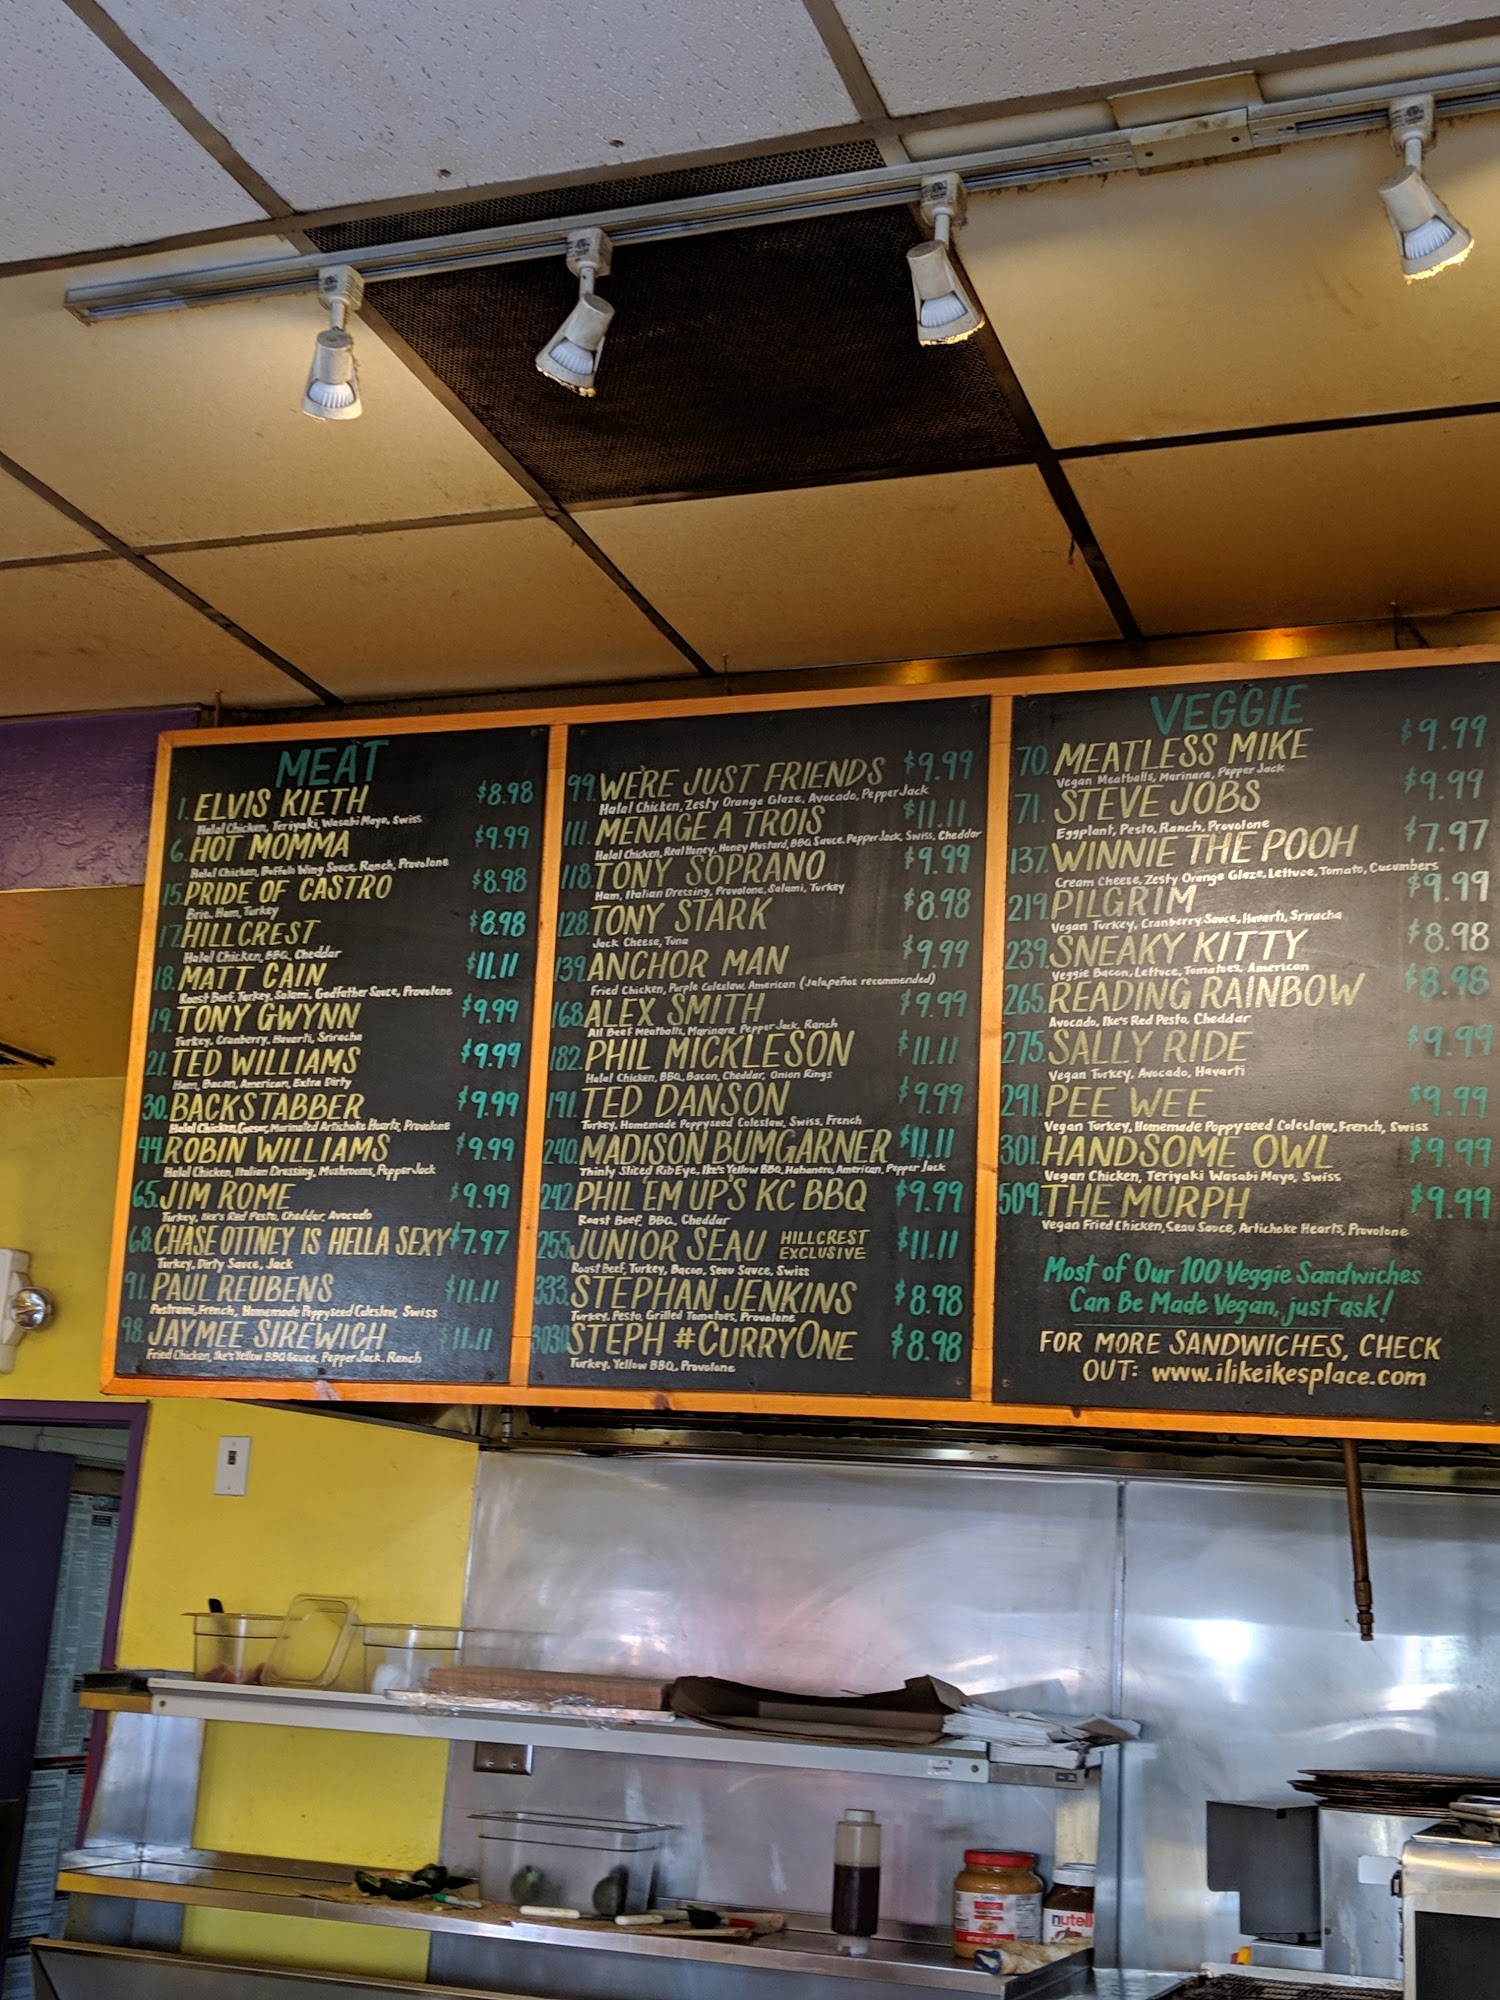 MEAT
1. ELVIS KIETH $8.98
Halal Chicken, Teriyaki, Wasabi Mayo, Swiss
6. HOT MOMMA $9.99
Halal Chicken, Buffalo Wing Sauce, Ranch, Provolone
15. PRIDE OF CASTRO $8.98
Brie, Ham, Turkey
17. HILLCREST $8.98
Halal Chicken, BBQ, Cheddar
18. MATT CAIN $11.11
Roast Beef, Turkey, Salami, Godfather Sauce, Provolone
19. TONY GWYNN $9.99
Turkey, Cranberry, Havarti, Sriracha
21. TED WILLIAMS $9.99
Ham, Bacon, American, Extra Dirty
30. BACKSTABBER $9.99
Halal Chicken, Caesar, Marinated Artichoke Hearts, Provolone
44. ROBIN WILLIAMS $9.99
Halal Chicken, Italian Dressing, Mushrooms, PepperJack
65. JIM ROME $9.99
Turkey, Ike's Red Pesto, Cheddar, Avocado
68. CHASE OTTNEY IS HELLA SEXY $7.97
Turkey, Dirty Sauce, Jack
91. PAUL REUBENS $11.11
Pastrami, French, Homemade Poppyseed Coleslaw, Swiss
98. JAYMEE SIREWICH $11.11
Fried Chicken, Ike's Yellow BBQ Sauce, PepperJack, Ranch
99. WE'RE JUST FRIENDS $9.99
Halal Chicken, Zesty Orange Glaze, Avocado, PepperJack
111. MENAGE A TROIS $11.11
Halal Chicken, Real Honey, Honey Mustard, BBQ Sauce, PepperJack, Swiss, Cheddar
118. TONY SOPRANO $9.99
Ham, Italian Dressing, Provolone, Salami, Turkey
128. TONY STARK $8.98
Jack Cheese, Tuna
139. ANCHOR MAN $9.99
Fried Chicken, Purple Coleslaw, American (Jalapeños recommended)
168. ALEX SMITH $9.99
All Beef Meatballs, Marinara, Pepper Jack, Ranch
182. PHIL MICKLESON $11.11
Halal Chicken, BBQ, Bacon, Cheddar, Onion Rings
191. TED DANSON $9.99
Turkey, Homemade Poppyseed Coleslaw, Swiss, French
240. MADISON BUMGARNER $11.11
Thinly Sliced RibEye, Ike's Yellow BBQ, Habanero, American, Pepper Jack
242. PHIL 'EM UP'S KC BBQ $9.99
Roast Beef, BBQ, Cheddar
255. JUNIOR SEAU HILLCREST EXCLUSIVE $11.11
Roast Beef, Turkey, Bacon, Seau Sauce, Swiss
333. STEPHAN JENKINS $8.98
Turkey, Pesto, Grilled Tomatoes, Provolone
3030. STEPH #CURRYONE $8.98
Turkey, Yellow BBQ, Provolone
VEGGIE
70. MEATLESS MIKE $9.99
Vegan Meatballs, Marinara, Pepper Jack
71. STEVE JOBS $9.99
Eggplant, Pesto, Ranch, Provolone
137. WINNIE THE POOH $7.97
Cream Cheese, Zesty Orange Glaze, Lettuce, Tomato, Cucumbers
219. PILGRIM $9.99
Vegan Turkey, Cranberry Sauce, Havarti, Sriracha
239. SNEAKY KITTY $8.98
Veggie Bacon, Lettuce, Tomatoes, American
265. READING RAINBOW $8.98
Avocado, Ike's Red Pesto, Cheddar
275. SALLY RIDE $9.99
Vegan Turkey, Avocado, Havarti
291. PEE WEE $9.99
Vegan Turkey, Homemade Poppyseed Coleslaw, French, Swiss
301. HANDSOME OWL $9.99
Vegan Chicken, Teriyaki Wasabi Mayo, Swiss
509. THE MURPH $9.99
Vegan Fried Chicken, Seau Sauce, Artichoke Hearts, Provolone
Most of Our 100 Veggie Sandwiches
Can Be Made Vegan, just ask!
FOR MORE SANDWICHES, CHECK
OUT: www.ilikeikesplace.com
nutell